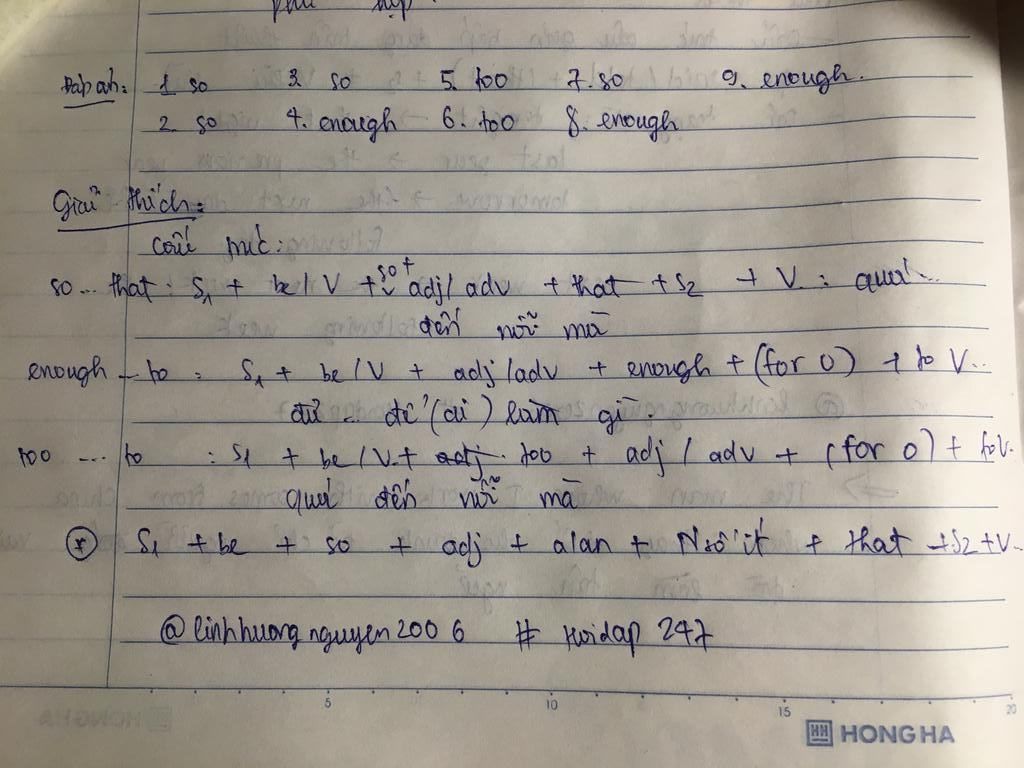 phù hợp
Đáp án: 1 so 3 so 5. too 7. so 9. enough.
2. so 4. enough 6. too 8. enough
Giải thích:
Cấu trúc:
so ... that : S1 + be/V + so + adj/adv + that + S2 + V : quá ...
đến nỗi mà
enough - to : S1 + be/V + adj/adv + enough + (for O) + to V...
đủ ... để (ai) làm gì.
too ... to : S1 + be/V + too + adj/adv + (for O) + to V.
quá đến nỗi mà
* S1 + be + so + adj + a/an + N số ít + that + S2 + V...
@linhhuongnguyen2006 # Hoidap 247
5 10 15 20
HH HONG HA